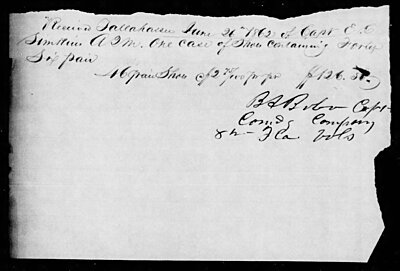 Received Tallahassee June 26th 1862 of Capt E. D.
A Q M. One case of Shoes containing Forty
Six pair
46 pair Shoes @ 2 75/100 pr pr $126.50
Capt
Comdg Company
8th Fla Vols